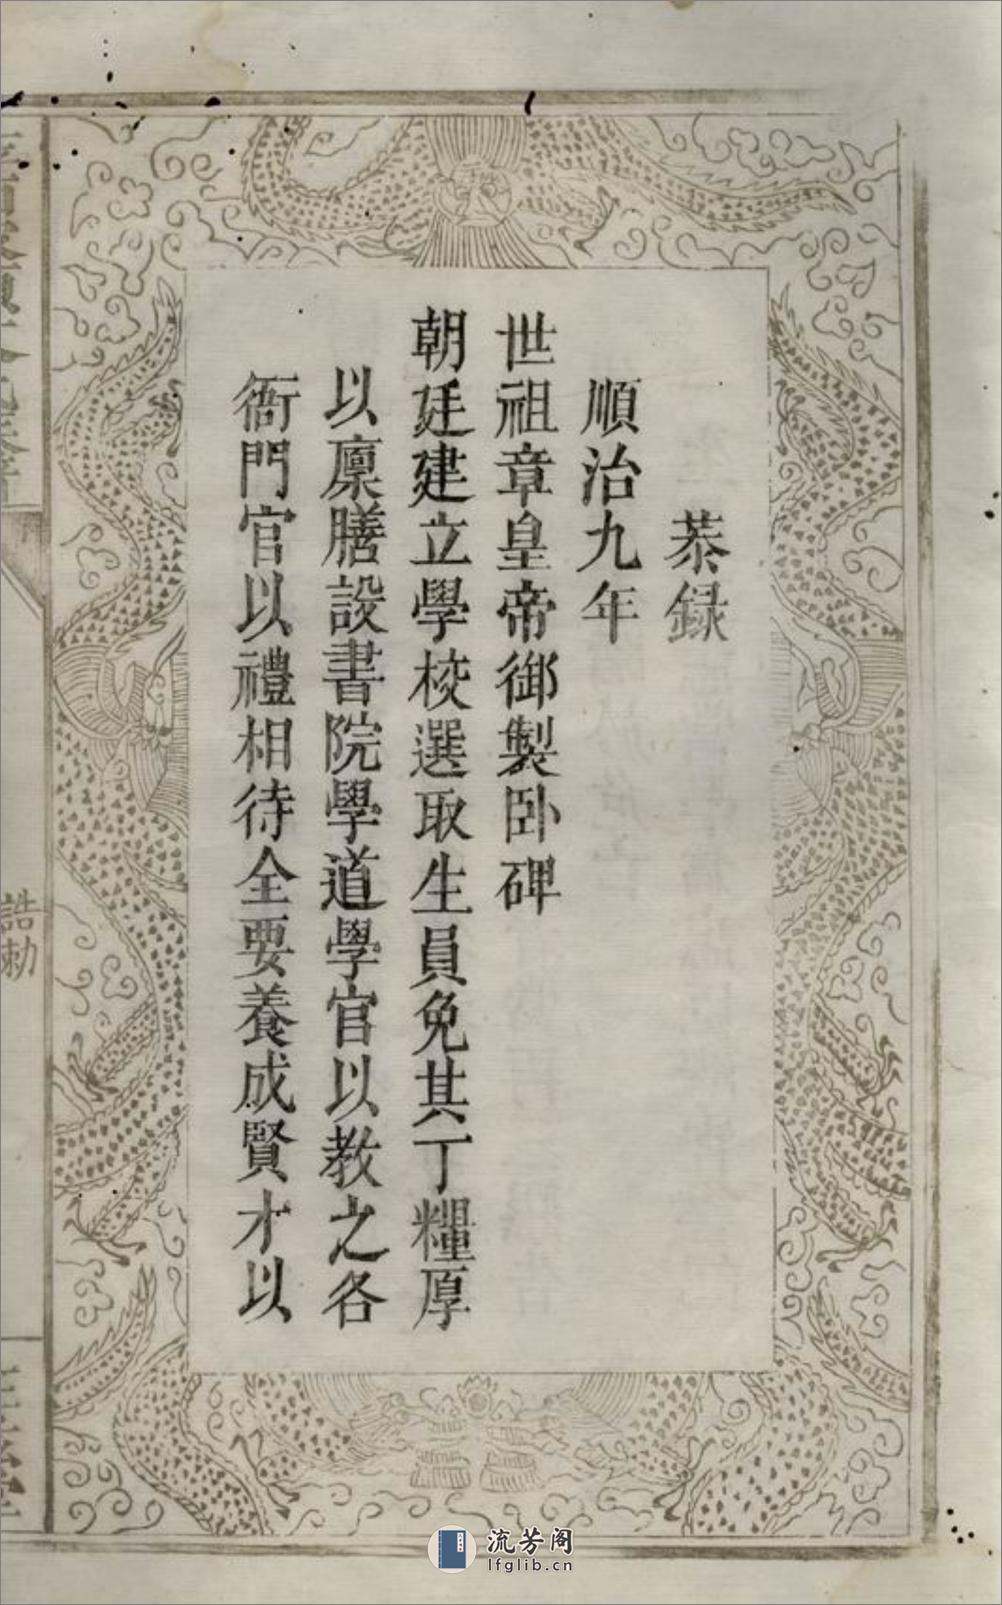 恭録
順治九年
世祖章皇帝御製卧碑
朝廷建立學校選取生員免其丁糧厚
以廩膳設書院學道學官以教之各
衙門官以禮相待全要養成賢才以
誥勅
流芳阁
lfglib.cn